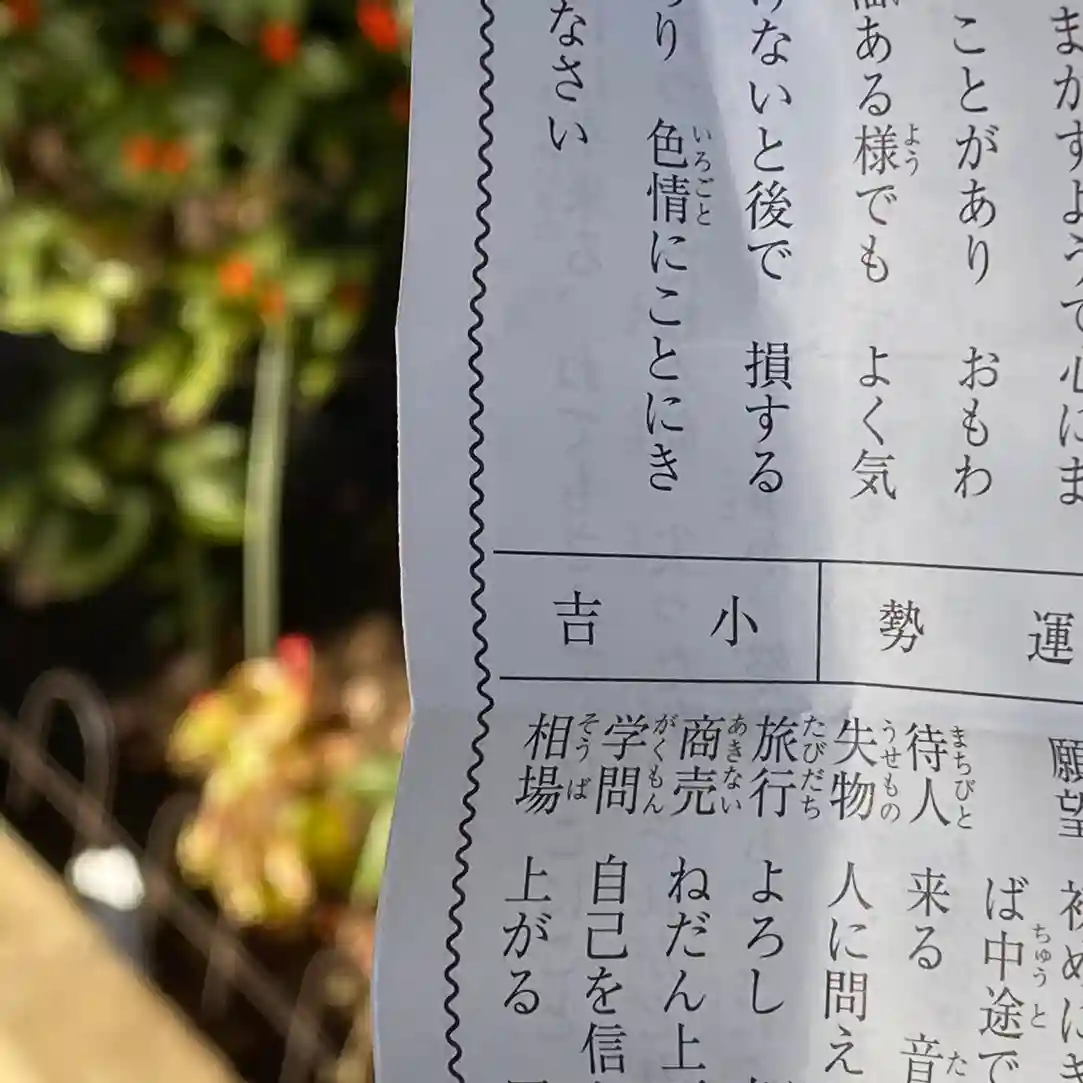 まかすようで心にま
ことがあり おもわ
ある様でも よく気
けないと後で 損する
り 色情にことにき
なさい
運勢 小吉
願望 初めにき
ば中途で
待人 来る 音
失物 人に問え
旅行 よろし
商売 ねだん上
学問 自己を信
相場 上がる